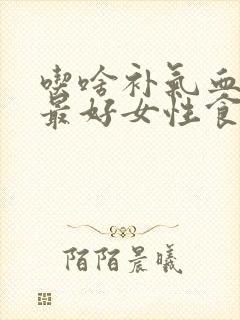 喫啥补氣血
最好女性食
陌陌晨曦